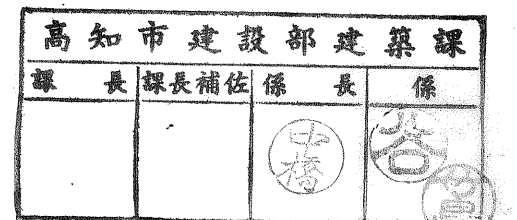 高知市建設部建築課
課長 課長補佐 係長 係
中橋 谷